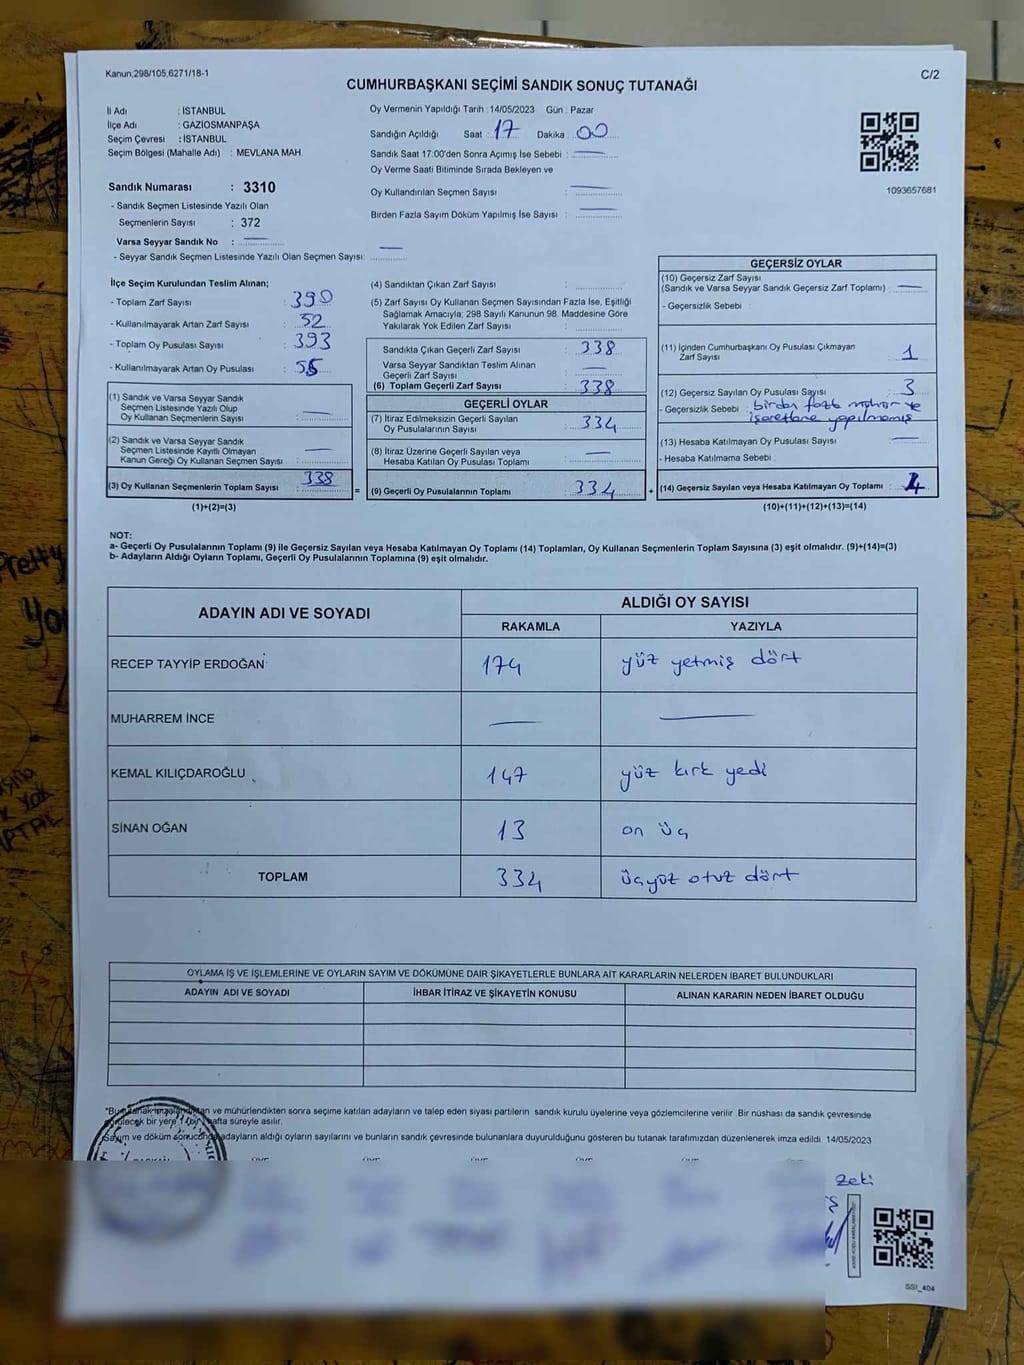 Kanun,298/105,6271/18-1
C/2
CUMHURBAŞKANI SEÇİMİ SANDIK SONUÇ TUTANAĞI
İl Adı : İSTANBUL
İlçe Adı : GAZİOSMANPAŞA
Seçim Çevresi : İSTANBUL
Seçim Bölgesi (Mahalle Adı) : MEVLANA MAH.
Sandık Numarası : 3310
- Sandık Seçmen Listesinde Yazılı Olan
Seçmenlerin Sayısı : 372
Varsa Seyyar Sandık No :
- Seyyar Sandık Seçmen Listesinde Yazılı Olan Seçmen Sayısı:
Oy Vermenin Yapıldığı Tarih : 14/05/2023 Gün : Pazar
Sandığın Açıldığı Saat : 17 Dakika : 00
Sandık Saat 17:00'den Sonra Açımış İse Sebebi :
Oy Verme Saati Bitiminde Sırada Bekleyen ve
Oy Kullandırılan Seçmen Sayısı :
Birden Fazla Sayım Döküm Yapılmış İse Sayısı :
1093657681
İlçe Seçim Kurulundan Teslim Alınan;
- Toplam Zarf Sayısı : 390
- Kullanılmayarak Artan Zarf Sayısı : 52
- Toplam Oy Pusulası Sayısı : 393
- Kullanılmayarak Artan Oy Pusulası : 55
(1) Sandık ve Varsa Seyyar Sandık
Seçmen Listesinde Yazılı Olup
Oy Kullanan Seçmenlerin Sayısı :
(2) Sandık ve Varsa Seyyar Sandık
Seçmen Listesinde Kayıtlı Olmayan
Kanun Gereği Oy Kullanan Seçmen Sayısı :
(3) Oy Kullanan Seçmenlerin Toplam Sayısı : 338
(1)+(2)=(3)
(4) Sandıktan Çıkan Zarf Sayısı :
(5) Zarf Sayısı Oy Kullanan Seçmen Sayısından Fazla İse, Eşitliği
Sağlamak Amacıyla; 298 Sayılı Kanunun 98. Maddesine Göre
Yakılarak Yok Edilen Zarf Sayısı :
Sandıkta Çıkan Geçerli Zarf Sayısı : 338
Varsa Seyyar Sandıktan Teslim Alınan
Geçerli Zarf Sayısı :
(6) Toplam Geçerli Zarf Sayısı : 338
GEÇERLİ OYLAR
(7) İtiraz Edilmeksizin Geçerli Sayılan
Oy Pusulalarının Sayısı : 334
(8) İtiraz Üzerine Geçerli Sayılan veya
Hesaba Katılan Oy Pusulası Toplamı :
= (9) Geçerli Oy Pusulalarının Toplamı : 334 +
GEÇERSİZ OYLAR
(10) Geçersiz Zarf Sayısı
(Sandık ve Varsa Seyyar Sandık Geçersiz Zarf Toplamı) :
- Geçersizlik Sebebi :
(11) İçinden Cumhurbaşkanı Oy Pusulası Çıkmayan
Zarf Sayısı : 1
(12) Geçersiz Sayılan Oy Pusulası Sayısı : 3
- Geçersizlik Sebebi : birden fazla mühür ve
işaretleme yapılmamış
(13) Hesaba Katılmayan Oy Pusulası Sayısı :
- Hesaba Katılmama Sebebi :
(14) Geçersiz Sayılan veya Hesaba Katılmayan Oy Toplamı : 4
(10)+(11)+(12)+(13)=(14)
NOT:
a- Geçerli Oy Pusulalarının Toplamı (9) ile Geçersiz Sayılan veya Hesaba Katılmayan Oy Toplamı (14) Toplamları, Oy Kullanan Seçmenlerin Toplam Sayısına (3) eşit olmalıdır. (9)+(14)=(3)
b- Adayların Aldığı Oyların Toplamı, Geçerli Oy Pusulalarının Toplamına (9) eşit olmalıdır.
ADAYIN ADI VE SOYADI ALDIĞI OY SAYISI
RAKAMLA YAZIYLA
RECEP TAYYİP ERDOĞAN 174 yüz yetmiş dört
MUHARREM İNCE
KEMAL KILIÇDAROĞLU 147 yüz kırk yedi
SİNAN OĞAN 13 on üç
TOPLAM 334 üçyüz otuz dört
OYLAMA İŞ VE İŞLEMLERİNE VE OYLARIN SAYIM VE DÖKÜMÜNE DAİR ŞİKAYETLERLE BUNLARA AİT KARARLARIN NELERDEN İBARET BULUNDUKLARI
ADAYIN ADI VE SOYADI İHBAR İTİRAZ VE ŞİKAYETİN KONUSU ALINAN KARARIN NEDEN İBARET OLDUĞU
ve mühürlendikten sonra seçime katılan adayların ve talep eden siyasi partilerin sandık kurulu üyelerine veya gözlemcilerine verilir .Bir nüshası da sandık çevresinde
bir yere hafta süreyle asılır.
Sayım ve döküm sonucunda adayların aldığı oyların sayılarını ve bunların sandık çevresinde bulunanlara duyurulduğunu gösteren bu tutanak tarafımızdan düzenlenerek imza edildi. 14/05/2023
zeki
SSI_404
Pretty